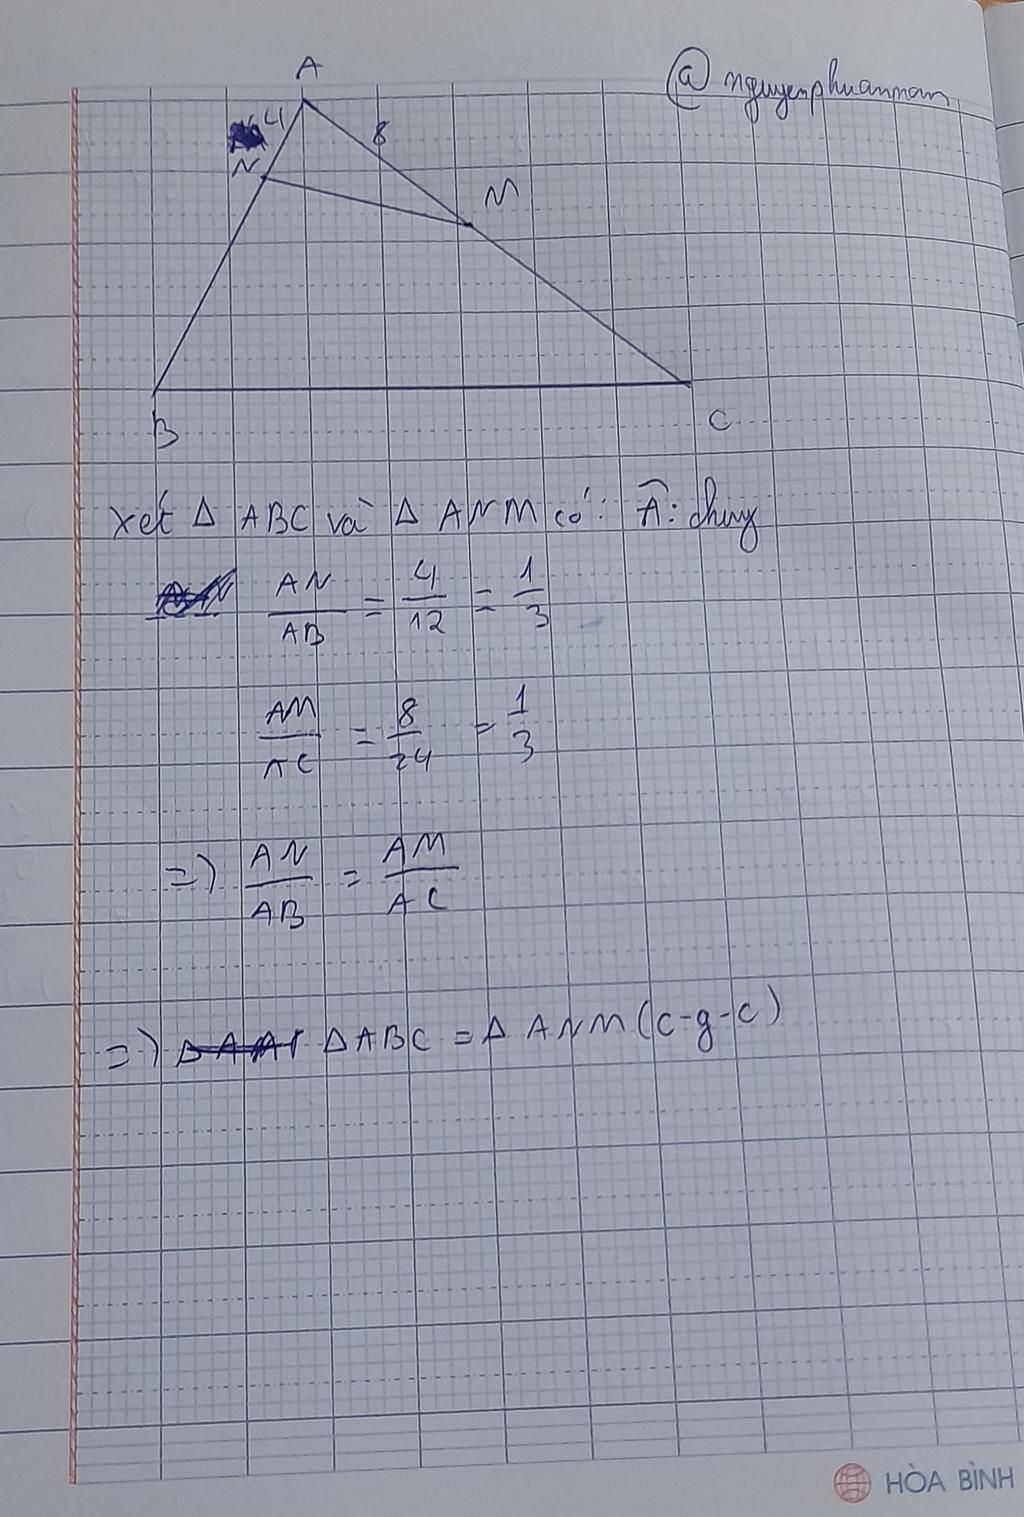 @nguyenphuannam
A
4
8
N
M
B
C
Xét Δ ABC và Δ ANM có: Â: chung
AN/AB = 4/12 = 1/3
AM/AC = 8/24 = 1/3
=) AN/AB = AM/AC
=) Δ ABC = Δ ANM (c-g-c)
HÒA BÌNH